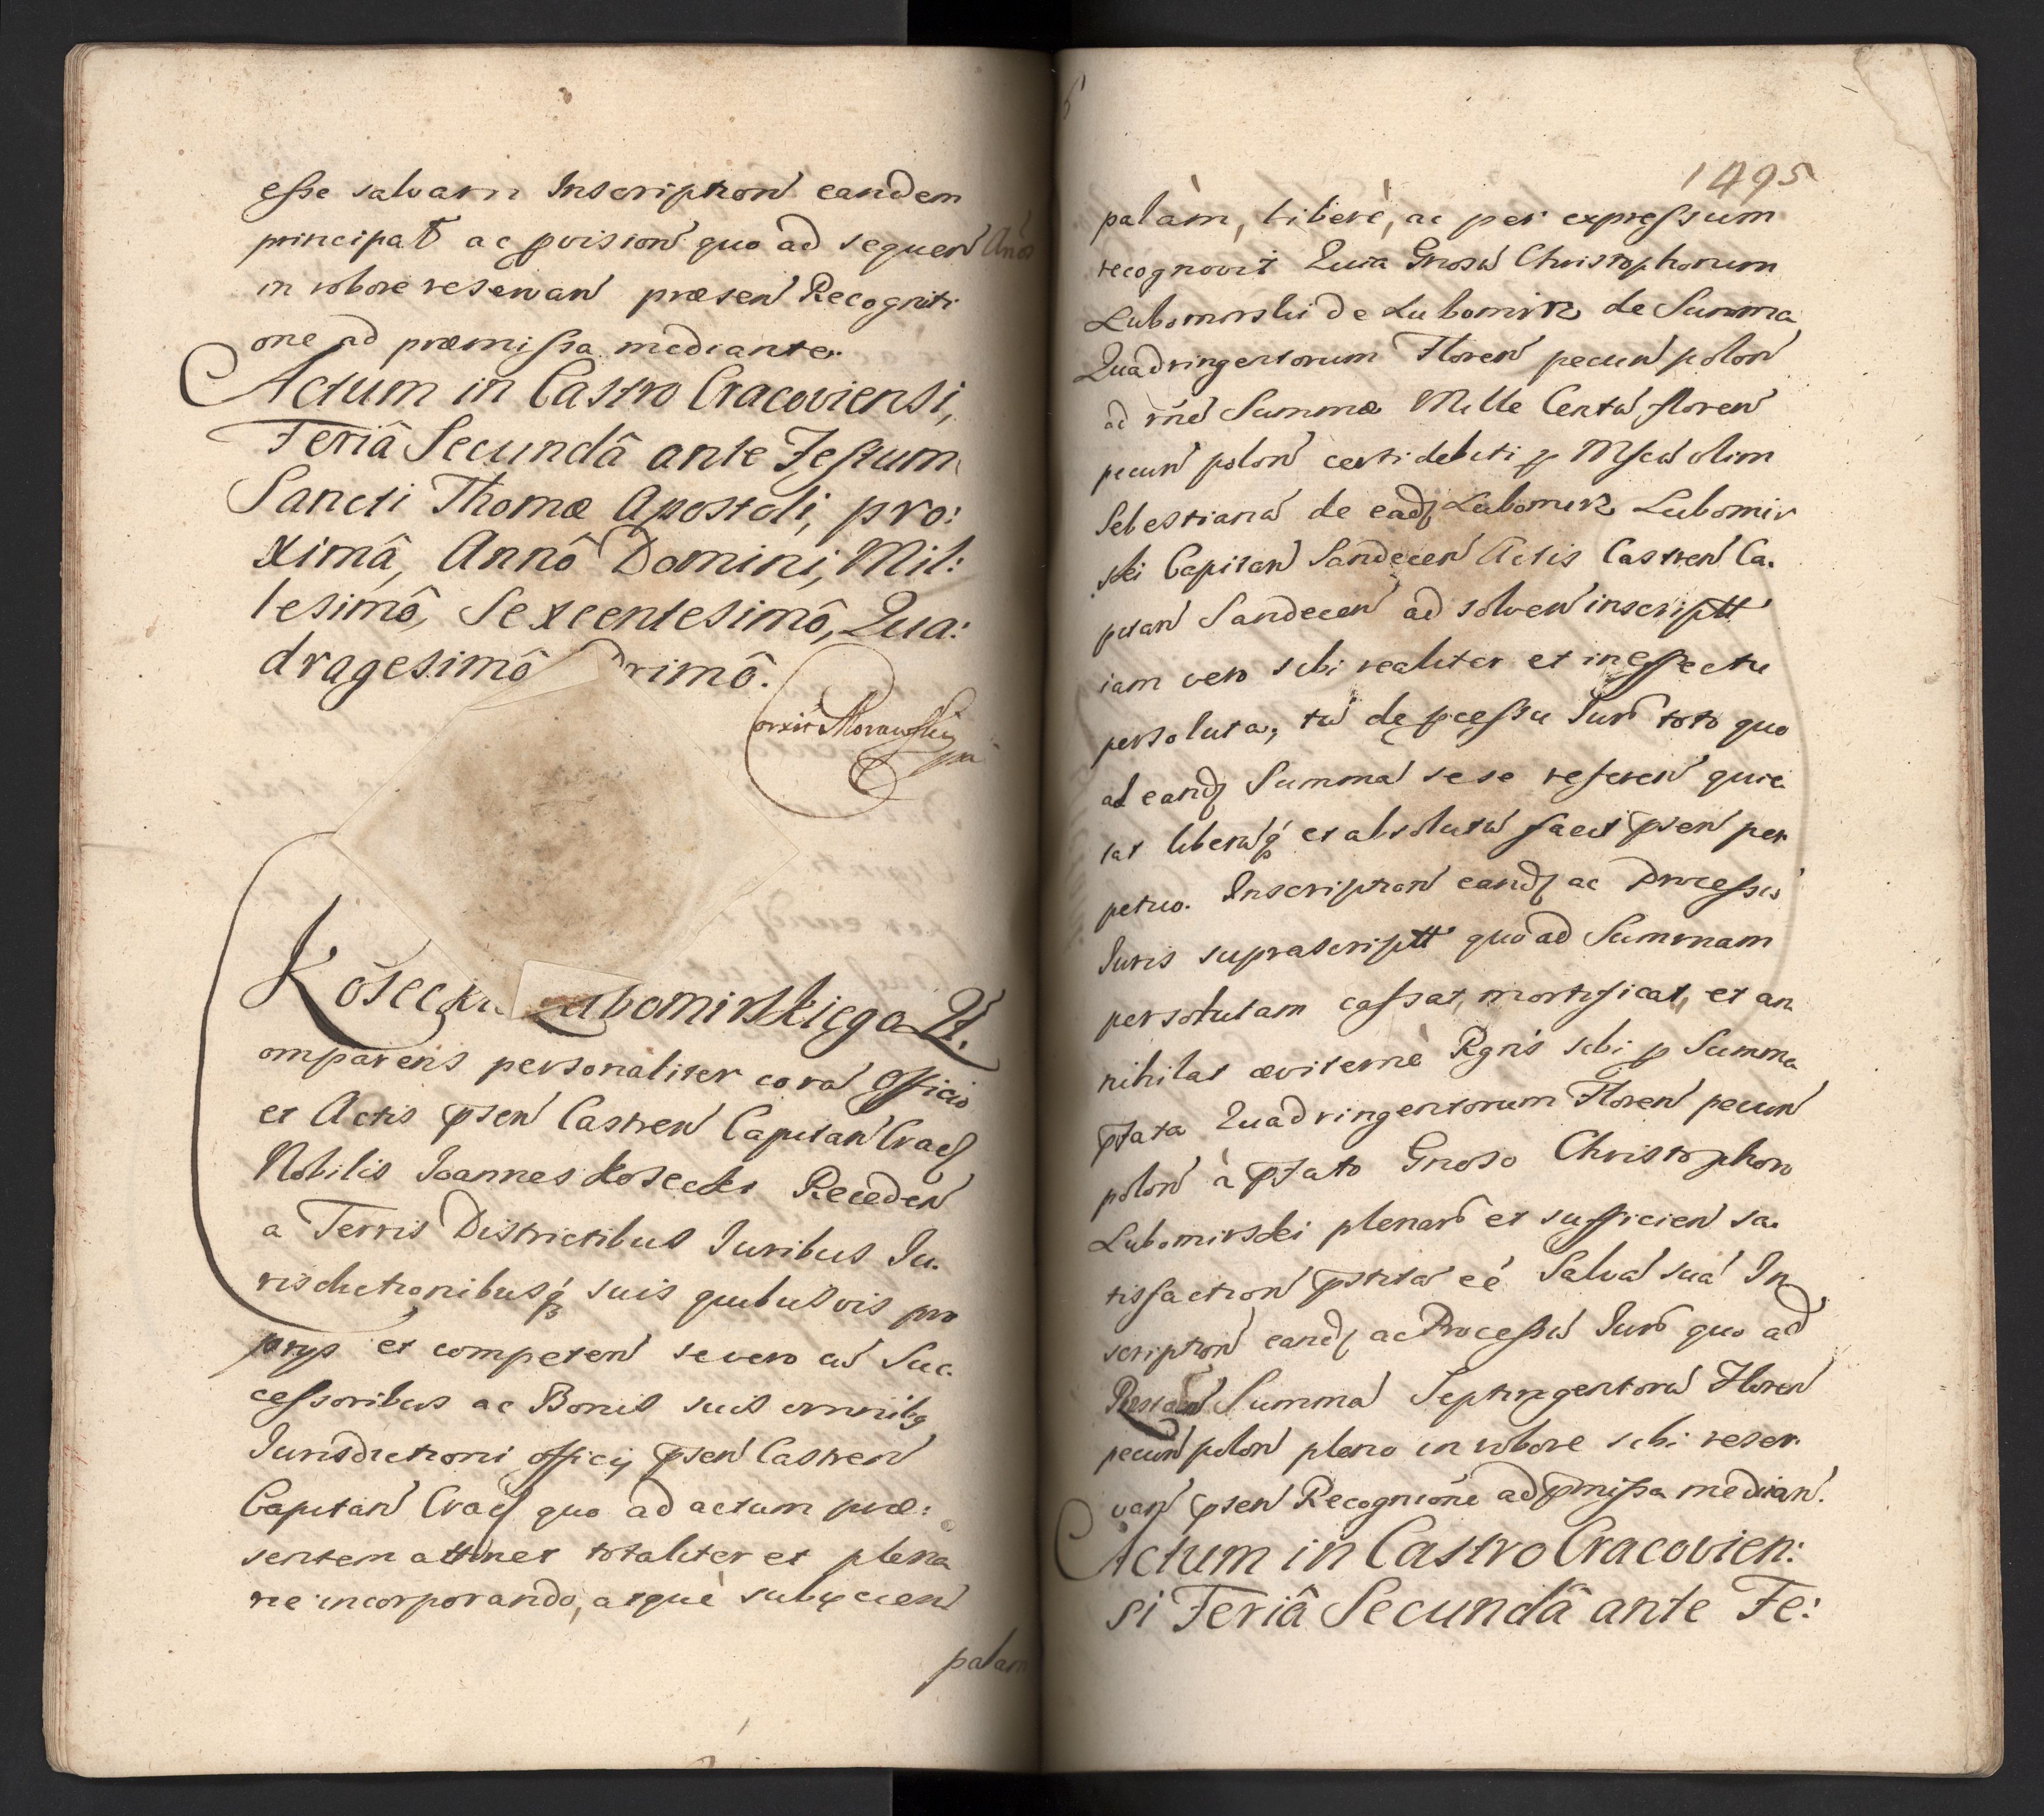 esse salvam Inscription eandem
principal ac provision quo ad sequen Annos
in robore reservan praesen Recogniti
one ad praemissa mediante.
Actum in Castro Cracoviensi,
Feriâ Secundâ ante Festum
Sancti Thomæ Apostoli, pro:
ximâ, Annô Domini, Mil:
lesimô, Sexcentesimô, Qua:
dragesimô Primô.
Morawski
Kosecki Lubomirskiego Qt.
omparens personaliter cora officio
et Actis psen Castren Capitan Crac
Nobilis Joannes Kosecki Receden
a Terris Districtibus Juribus Ju
risdictionibusq suis quibusvis pro
prys et competen se vero cu Suc
cessoribus ac Bonis suis omnibq
Jurisdictioni officij psen Castren
Capitan Crac quo ad actum præ:
sentem attinet totaliter et plena
rie incorporando, atque subijcien
palam
1495
palàm, liberè, ac per expressum
recognovit Quia Gnosu Christophorum
Lubomirski de Lubomirz de Summa
Quadringentorum Floren pecun polon
ad rne Summæ Mille Centu floren
pecun polon certi debiti p Mfcu olim
Sebestianu de ead Lubomirz Lubomir
ski Capitan Sandecen Actis Castren Ca
pitan Sandecen ad solven inscriptt
iam vero sibi realiter et in effectu
persoluta, tu de pcessu Juris toto quo
ad eand Summa sese referen quie
tat liberuq et absolutu facit psen per
petuo. Inscription eand ac Processus
Juris suprascriptt quo ad Summam
persolutam cassat, mortificat, et an
nihilat æviternè Rgns sibi p Summa
pfata Quadringentorum Floren pecun
polon à pfato Gnoso Christophoro
Lubomirski plenar et sufficien sa
tisfaction pstita eé Salva sua In
scription eand ac Processu Juris quo ad
Restan Summa Septingentoru Floren
pecun polon pleno in robore sibi reser
van psen Recognione ad pmissa median.
Actum in Castro Cracovien:
si Feriâ Secundâ ante Fe: